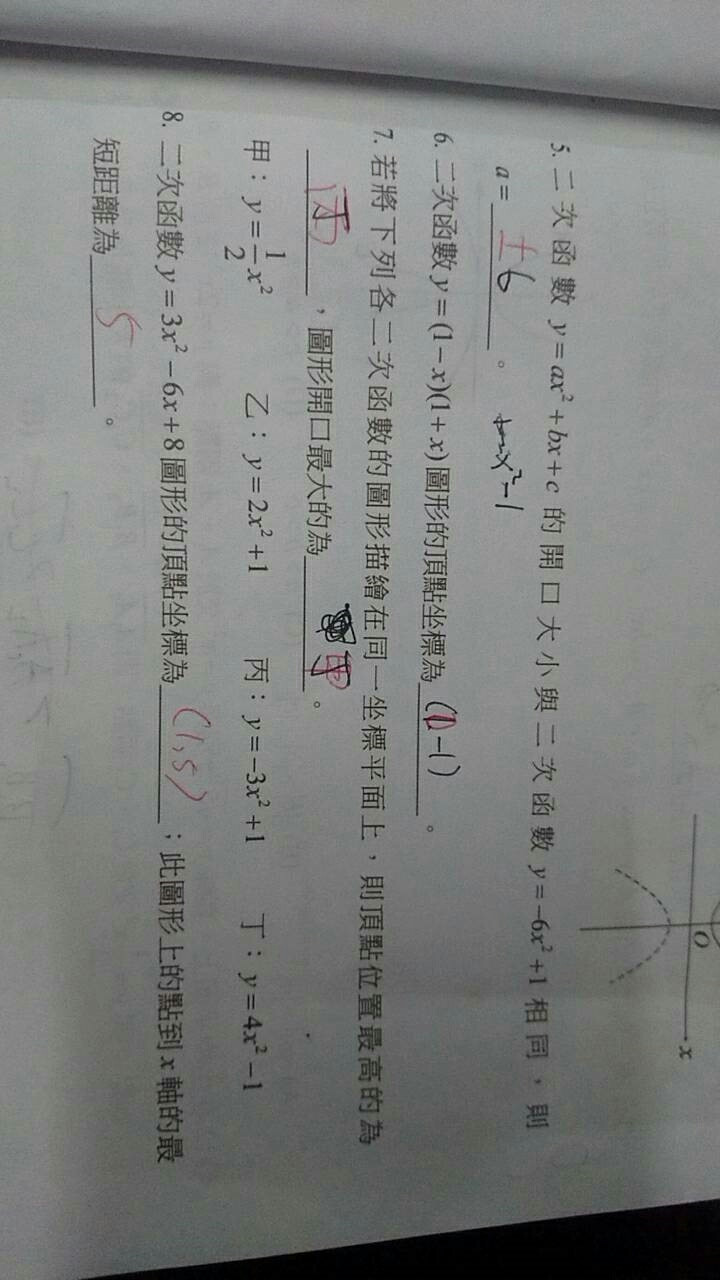 O
x
5. 二次函數 y=ax²+bx+c 的開口大小與二次函數 y=-6x²+1 相同，則
a= ±6 。
x²-1
6. 二次函數 y=(1-x)(1+x) 圖形的頂點坐標為 -1) 。
7. 若將下列各二次函數的圖形描繪在同一坐標平面上，則頂點位置最高的為
，圖形開口最大的為 。
甲：y=1/2x² 乙：y=2x²+1 丙：y=-3x²+1 丁：y=4x²-1
8. 二次函數 y=3x²-6x+8 圖形的頂點坐標為 (1,5) ；此圖形上的點到 x 軸的最
短距離為 5 。